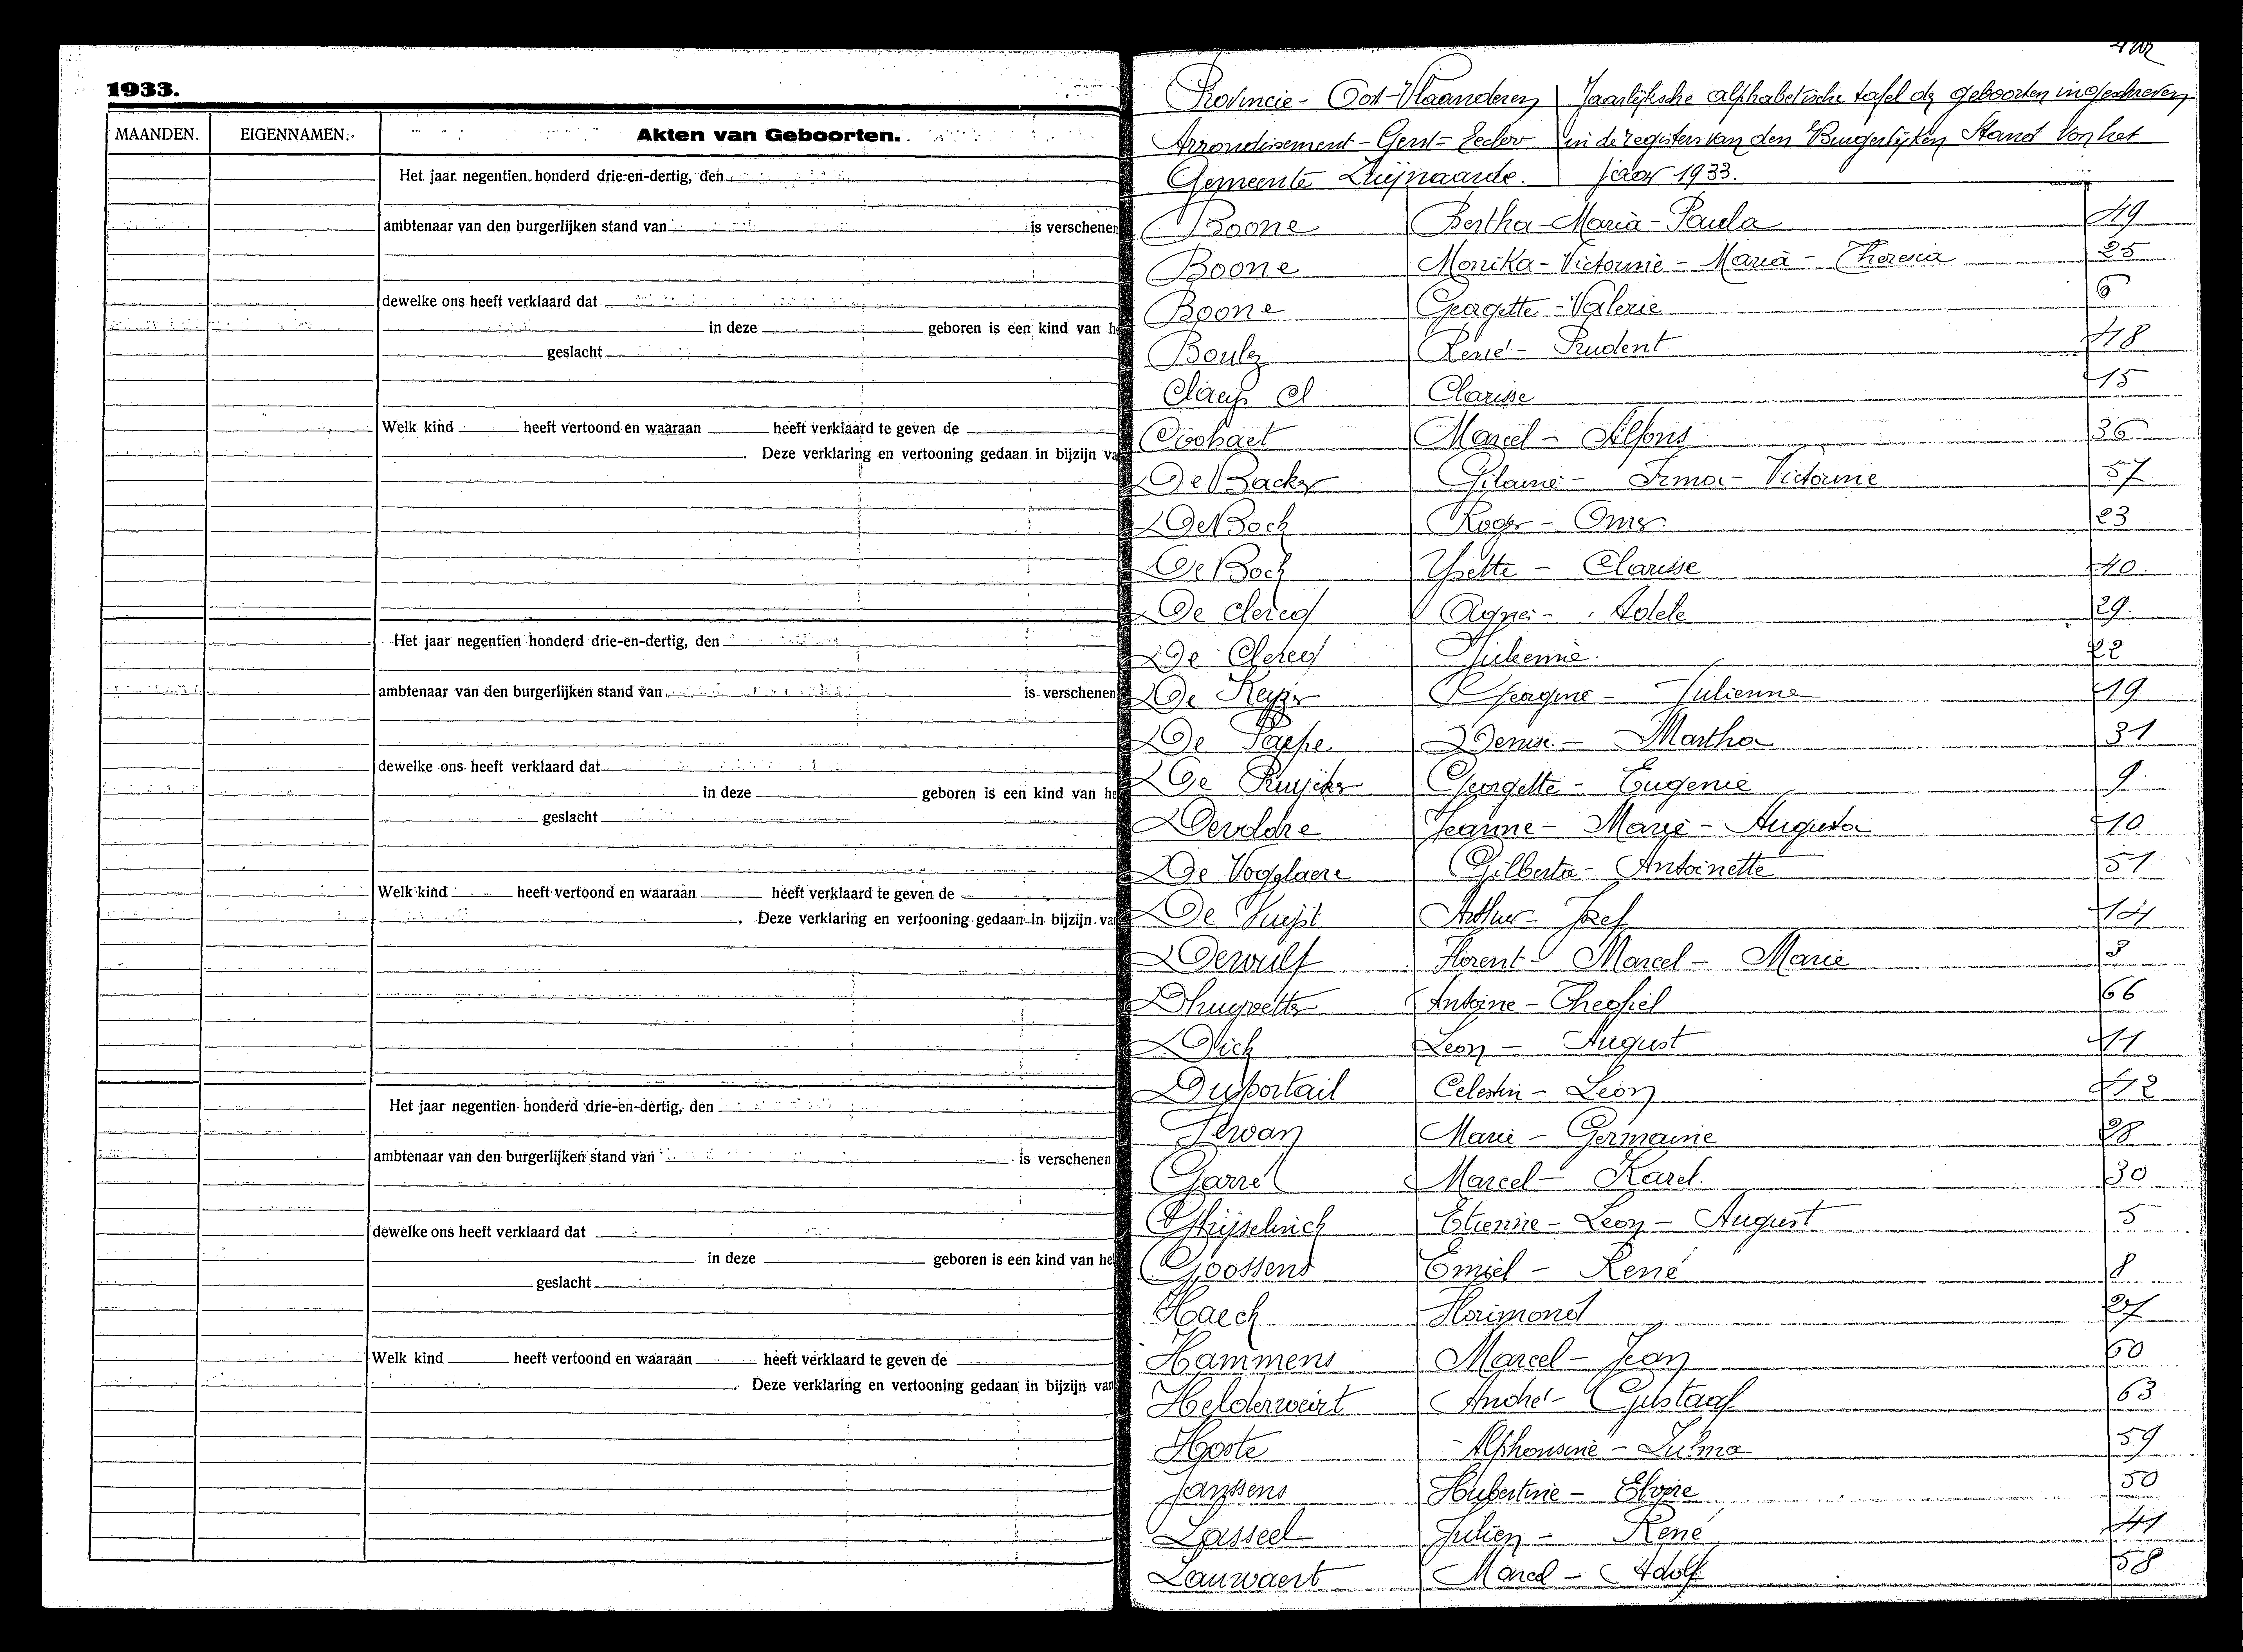 1933.
MAANDEN. EIGENNAMEN. Akten van Geboorten.
Het jaar negentien honderd drie-en-dertig, den
ambtenaar van den burgerlijken stand van is verschenen
dewelke ons heeft verklaard dat
in deze geboren is een kind van he
geslacht
Welk kind heeft vertoond en waaraan heeft verklaard te geven de
Deze verklaring en vertooning gedaan in bijzijn va
Het jaar negentien honderd drie-en-dertig, den
ambtenaar van den burgerlijken stand van is verschenen
dewelke ons heeft verklaard dat
in deze geboren is een kind van he
geslacht
Welk kind heeft vertoond en waaraan heeft verklaard te geven de
Deze verklaring en vertooning gedaan in bijzijn va
Het jaar negentien honderd drie-en-dertig, den
ambtenaar van den burgerlijken stand van is verschenen
dewelke ons heeft verklaard dat
in deze geboren is een kind van he
geslacht
Welk kind heeft vertoond en waaraan heeft verklaard te geven de
Deze verklaring en vertooning gedaan in bijzijn van
Provincie - Oost-Vlaanderen Jaarlijksche alphabetische tafel der geboorten ingeschreven
Arrondissement - Gent - Eecloo in de registers van den Burgerlijken Stand van het
Gemeente Zwijnaarde. jaar 1933.
Boone Bertha - Maria - Paula 49
Boone Monika - Victorine - Maria - Theresia 25
Boone Georgette - Valerie 6
Boulez René - Prudent 18
Claeys Clarisse 15
Coobaet Marcel - Alfons 36
De Backer Gilaine - Irma - Victorine 57
De Bock Roger - Omer 23
De Bock Yvette - Clarisse 40.
De Clercq Agnes - Adele 29.
De Clercq Julienne. 22
De Keyzer Georgine - Julienne 19
De Paepe Denise - Martha 31
De Ruijcker Georgette - Eugenie 9
Devoldre Jeanne - Marie - Augusta 10
De Vogelaere Gilberta - Antoinette 51
De Vuyst Arthur - Jozef 14
Dewulf Florent - Marcel - Marie 3
Dhuyvetter Antoine - Theofiel 66
Dick Leon - August 11
Duportail Celestin - Leon 12
Marie - Germaine 28
Garré Marcel - Karel. 30
Ghijselinck Etienne - Leon - August 5
Goossens Emiel - René 8
Haeck Florimond 27
Hammens Marcel - Jean 60
Helderweirt André - Gustaaf 63
Hoste Alphonsine - Zulma 59
Janssens Hubertine - Elvire 50
Lasseel Julien - René 41
Lauwaert Marcel - Adolf 58